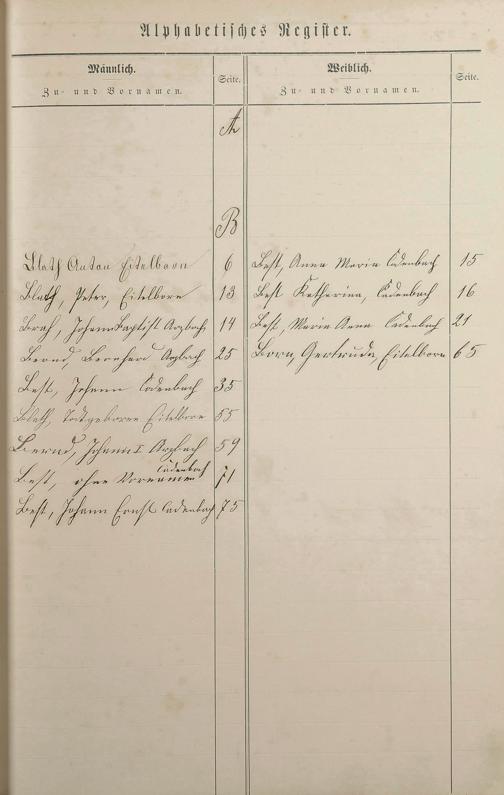 Alphabetisches Register.
Männlich.
Seite.
Weiblich.
Seite.
Zu- und Vornamen.
Zu- und Vornamen.
A
B
Blath Anton Eitelborn 6
Best, Anna Maria Cadenbach 15
Blath, Peter, Eitelborn 13
Best Katharina, Cadenbach 16
Johann Baptist Arzbach 14
Best, Maria Anna Cadenbach 21
Bernd, Bernhard Arzbach 25
Born, Gertruda, Eitelborn 65
Best, Johann Cadenbach 35
Blath, Todtgeboren Eitelborn 55
Bernd, Johann I Arzbach 59
Best, ohne Vornamen Cadenbach 71
Best, Johann Ernst Cadenbach 75